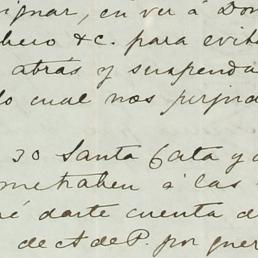 ignar, en vez á Don
hero &c. para evita
atrás y suspenda
lo cual nos perjud
30 Santa Cata y
metraben á las
é darte cuenta d
de A de P. por